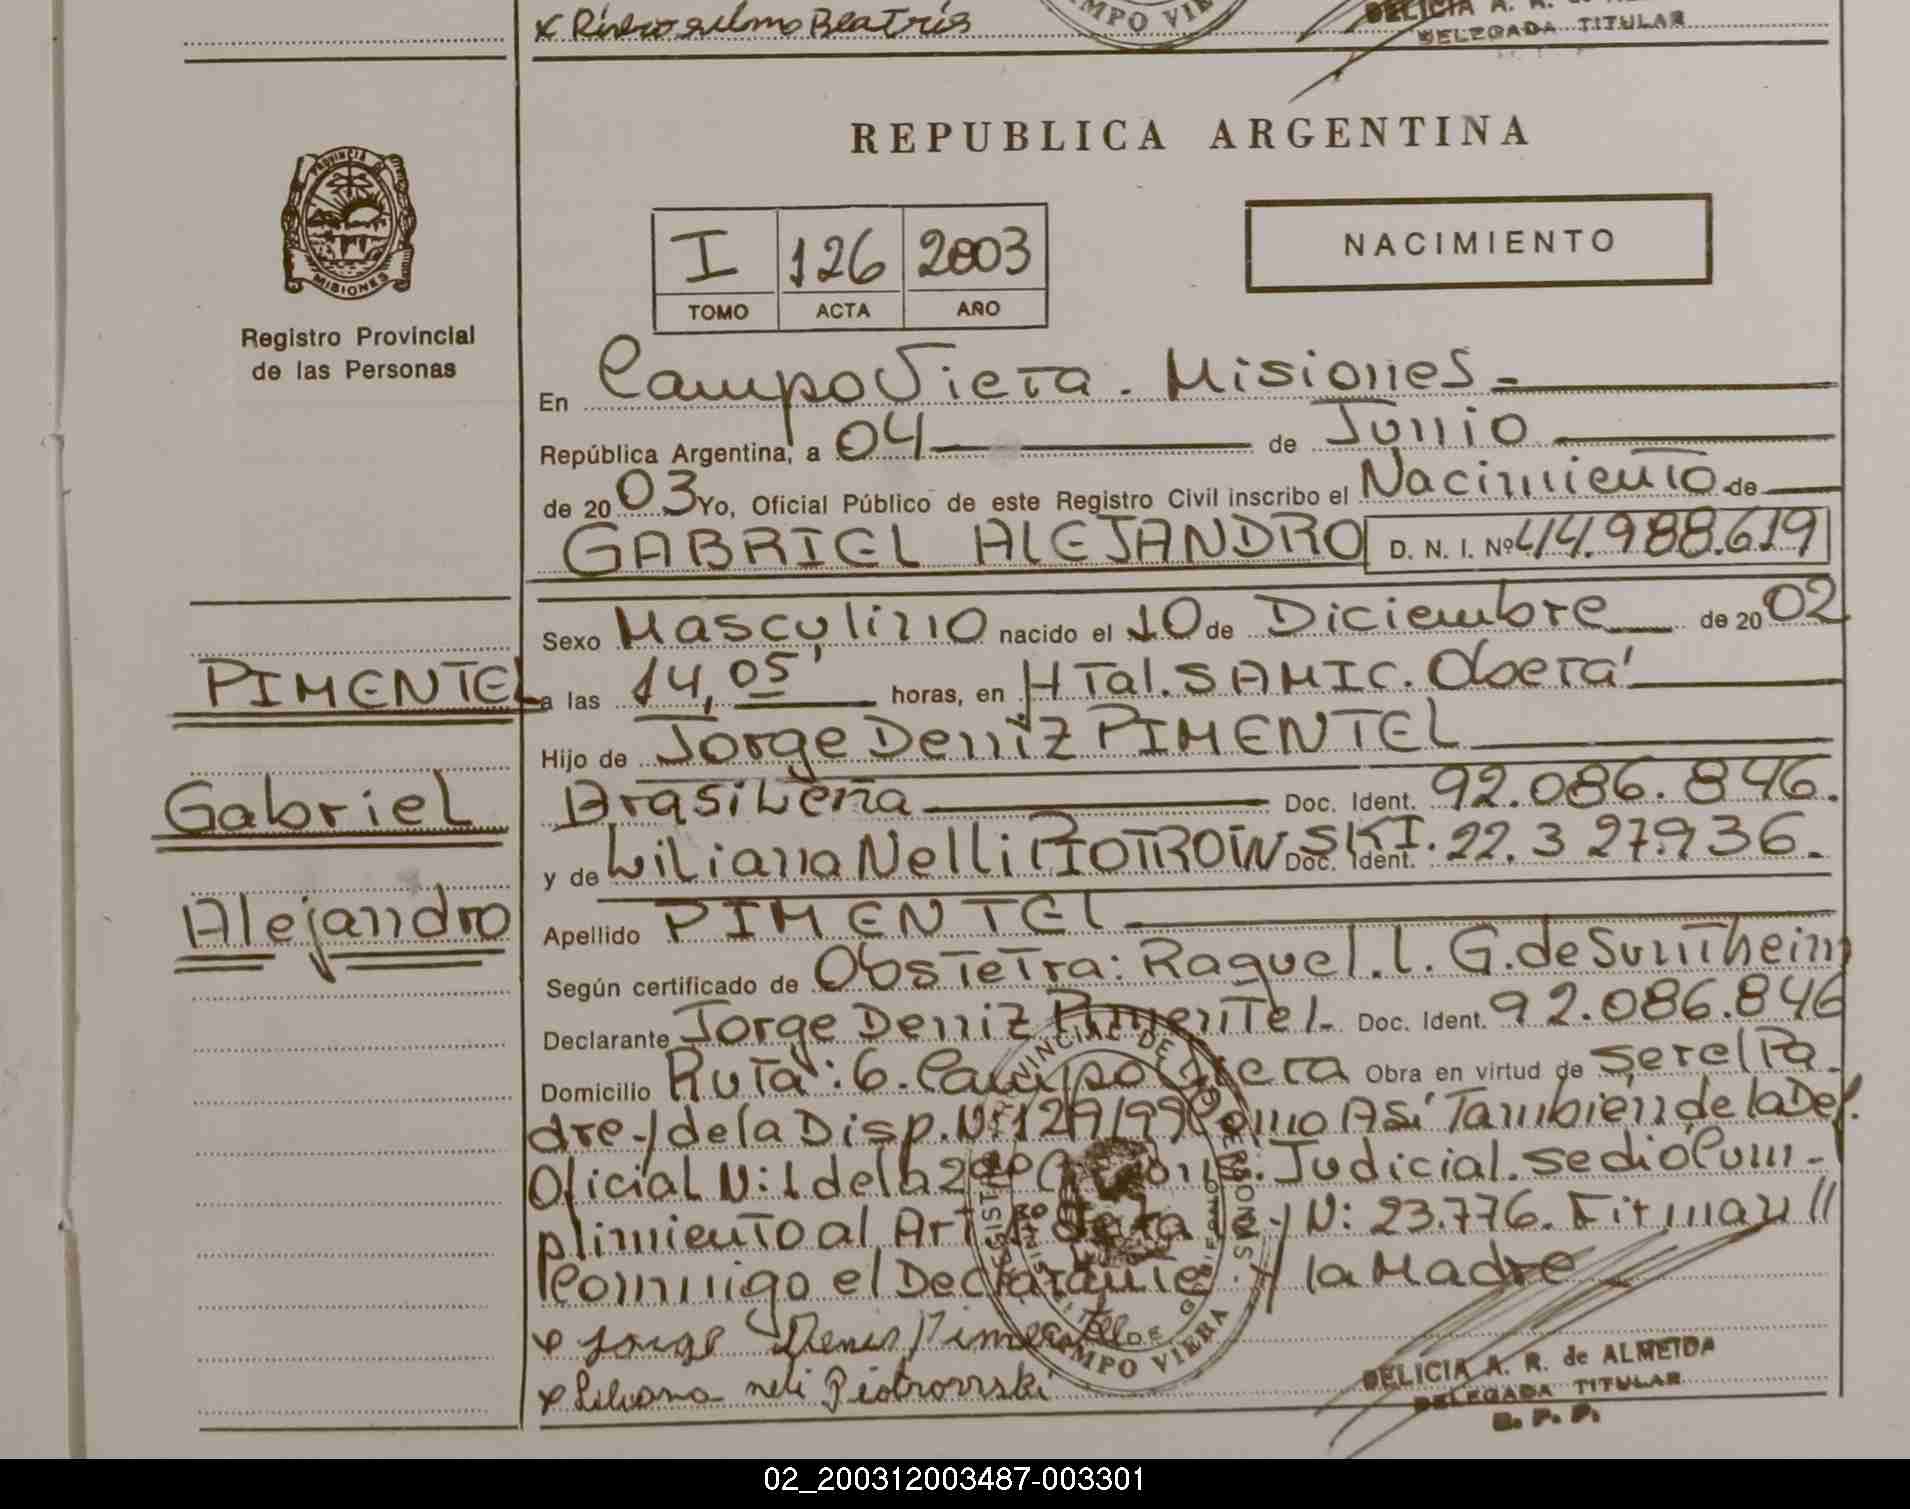 x Rivero selmo Beatris
CAMPO VIERA
DELICIA A. R. de ALMEIDA
DELEGADA TITULAR
REPUBLICA ARGENTINA
PROVINCIA DE
MISIONES
Registro Provincial
de las Personas
I 126 2003
TOMO ACTA AÑO
NACIMIENTO
En Campo Viera. Misiones =
República Argentina, a 04 de Junio
de 2003 Yo, Oficial Público de este Registro Civil inscribo el Nacimiento de
GABRIEL ALEJANDRO D. N. I. Nº 44.988.619
Sexo Masculino nacido el 10 de Diciembre de 2002
PIMENTEL
a las 14,05' horas, en HTal. SAMIC. Oberá
Hijo de Jorge Derniz PIMENTEL
Gabriel
Brasileña Doc. Ident. 92.086.846.
y de Liliana Nelli PIOTROWSKI. Doc. Ident. 22.327.936.
Alejandro
Apellido PIMENTEL
Según certificado de Obstetra: Raquel. L. G. de Suntheim
Declarante Jorge Derniz Pimentel. Doc. Ident. 92.086.846
Domicilio Ruta: 6. Campo Viera Obra en virtud de ser el Pa-
dre y de la Disp. Nº: 129/99 Como Así También de la Def.
Oficial N: 1 de la 2da Judicial. se dió Cum-
plimiento al Art de la Ley N: 23.776. Firman //
Conmigo el Declarante. y la Madre
x Jorge Denis Pimentel
x Liliana neli Piotrowski
CAMPO VIERA
DELICIA A. R. de ALMEIDA
DELEGADA TITULAR
R. P. P.
02_200312003487-003301